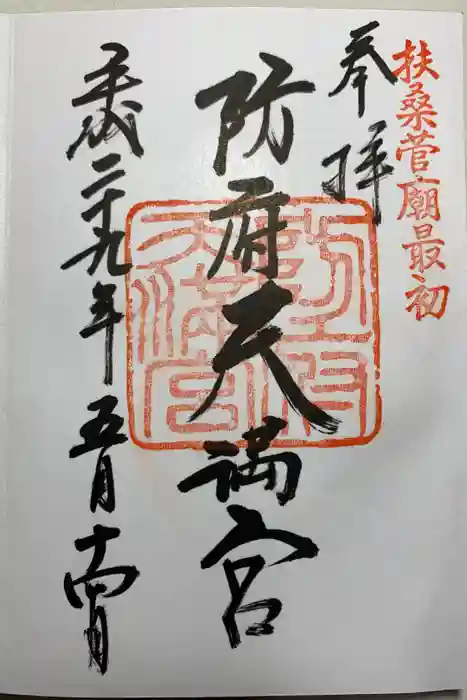 扶桑菅廟最初
奉拝
防府天満宮
平成二十九年五月十四日